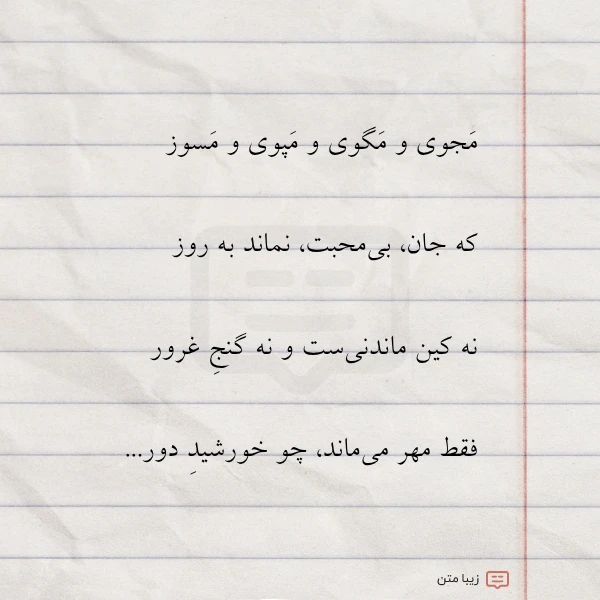 مَجوی و مَگوی و مَپوی و مَسوز
که جان، بی‌محبت، نماند به روز
نه کین ماندنی‌ست و نه گنجِ غرور
فقط مهر می‌ماند، چو خورشیدِ دور...
زیبا متن